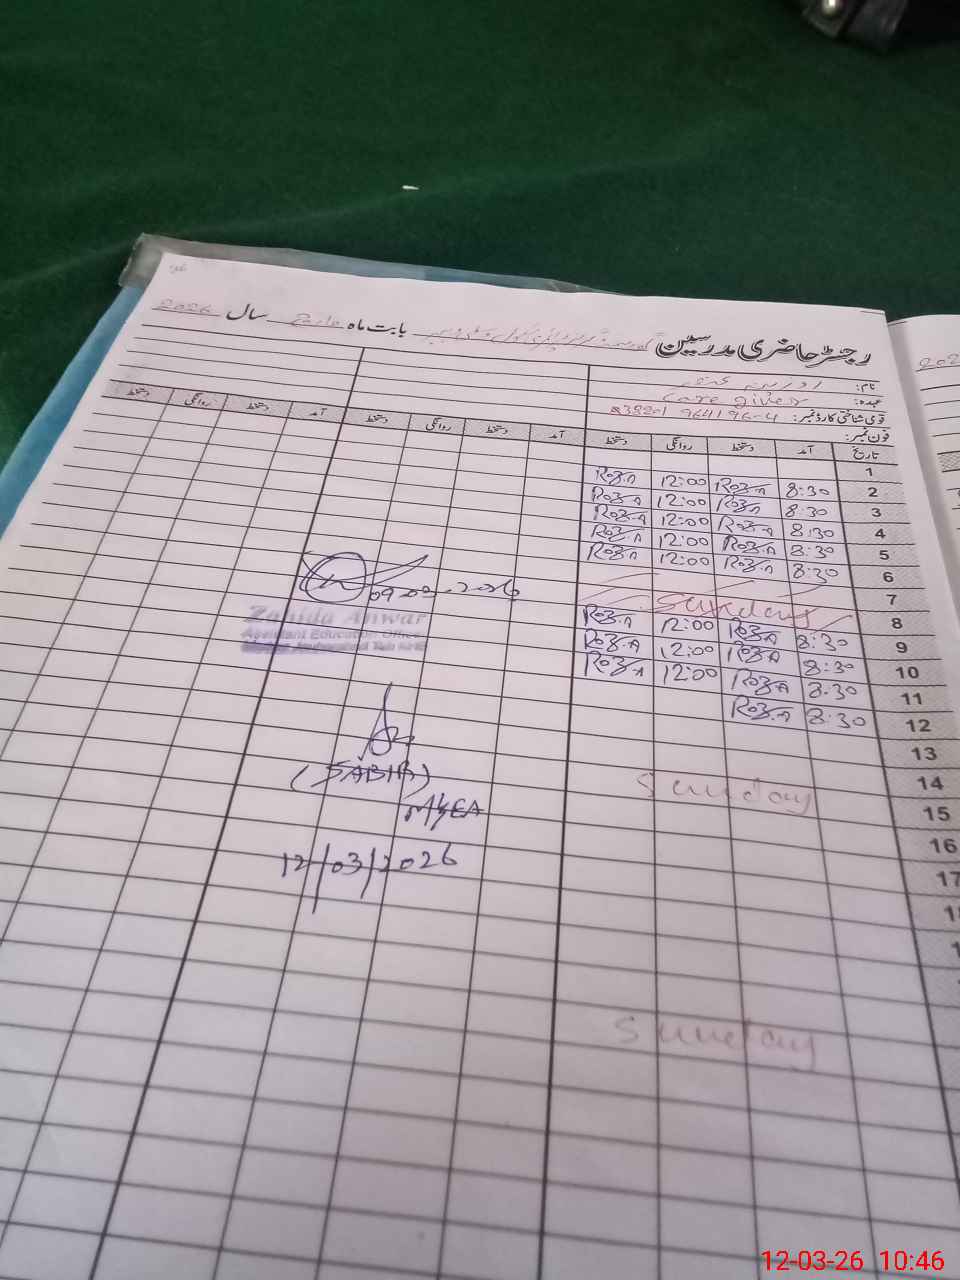 رجسٹر حاضری مدرسین بابت ماہ مارچ سال 2026
نام:
عہدہ: Care giver
قومی شناختی کارڈ نمبر:
فون نمبر:
تاریخ آمد دستخط روانگی دستخط آمد دستخط روانگی دستخط آمد دستخط روانگی دستخط
1
2 8:30 Roz.A 12:00 Roz.A
3 8:30 Roz.A 12:00 Roz.A
4 8:30 Roz.A 12:00 Roz.A
5 8:30 Roz.A 12:00 Roz.A
6 8:30 Roz.A 12:00 Roz.A
7
8 Sunday
9 8:30 Roz.A 12:00 Roz.A
10 8:30 Roz.A 12:00 Roz.A
11 8:30 Roz.A 12:00 Roz.A
12 8:30 Roz.A
13
14
15 Sunday
16
17
Sunday
Zahida Anwar
Assistant Education Officer
(SABIR)
M&EA
12/03/2026
12-03-26 10:46